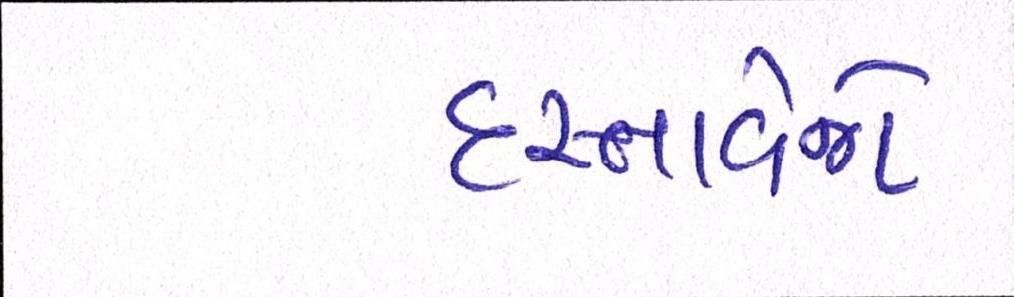 દસ્તાવેજો